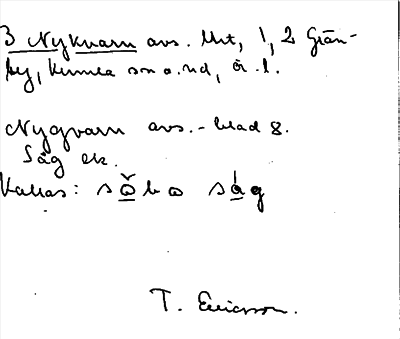 3 Nykvarn avs. Utt, 1, 2 Grän-
by, Kumla sn o. nd, Ör. l.
Nygvarn avs. - blad 8.
Såg ek.
Kallas: såbo såg
T. Ericsson.